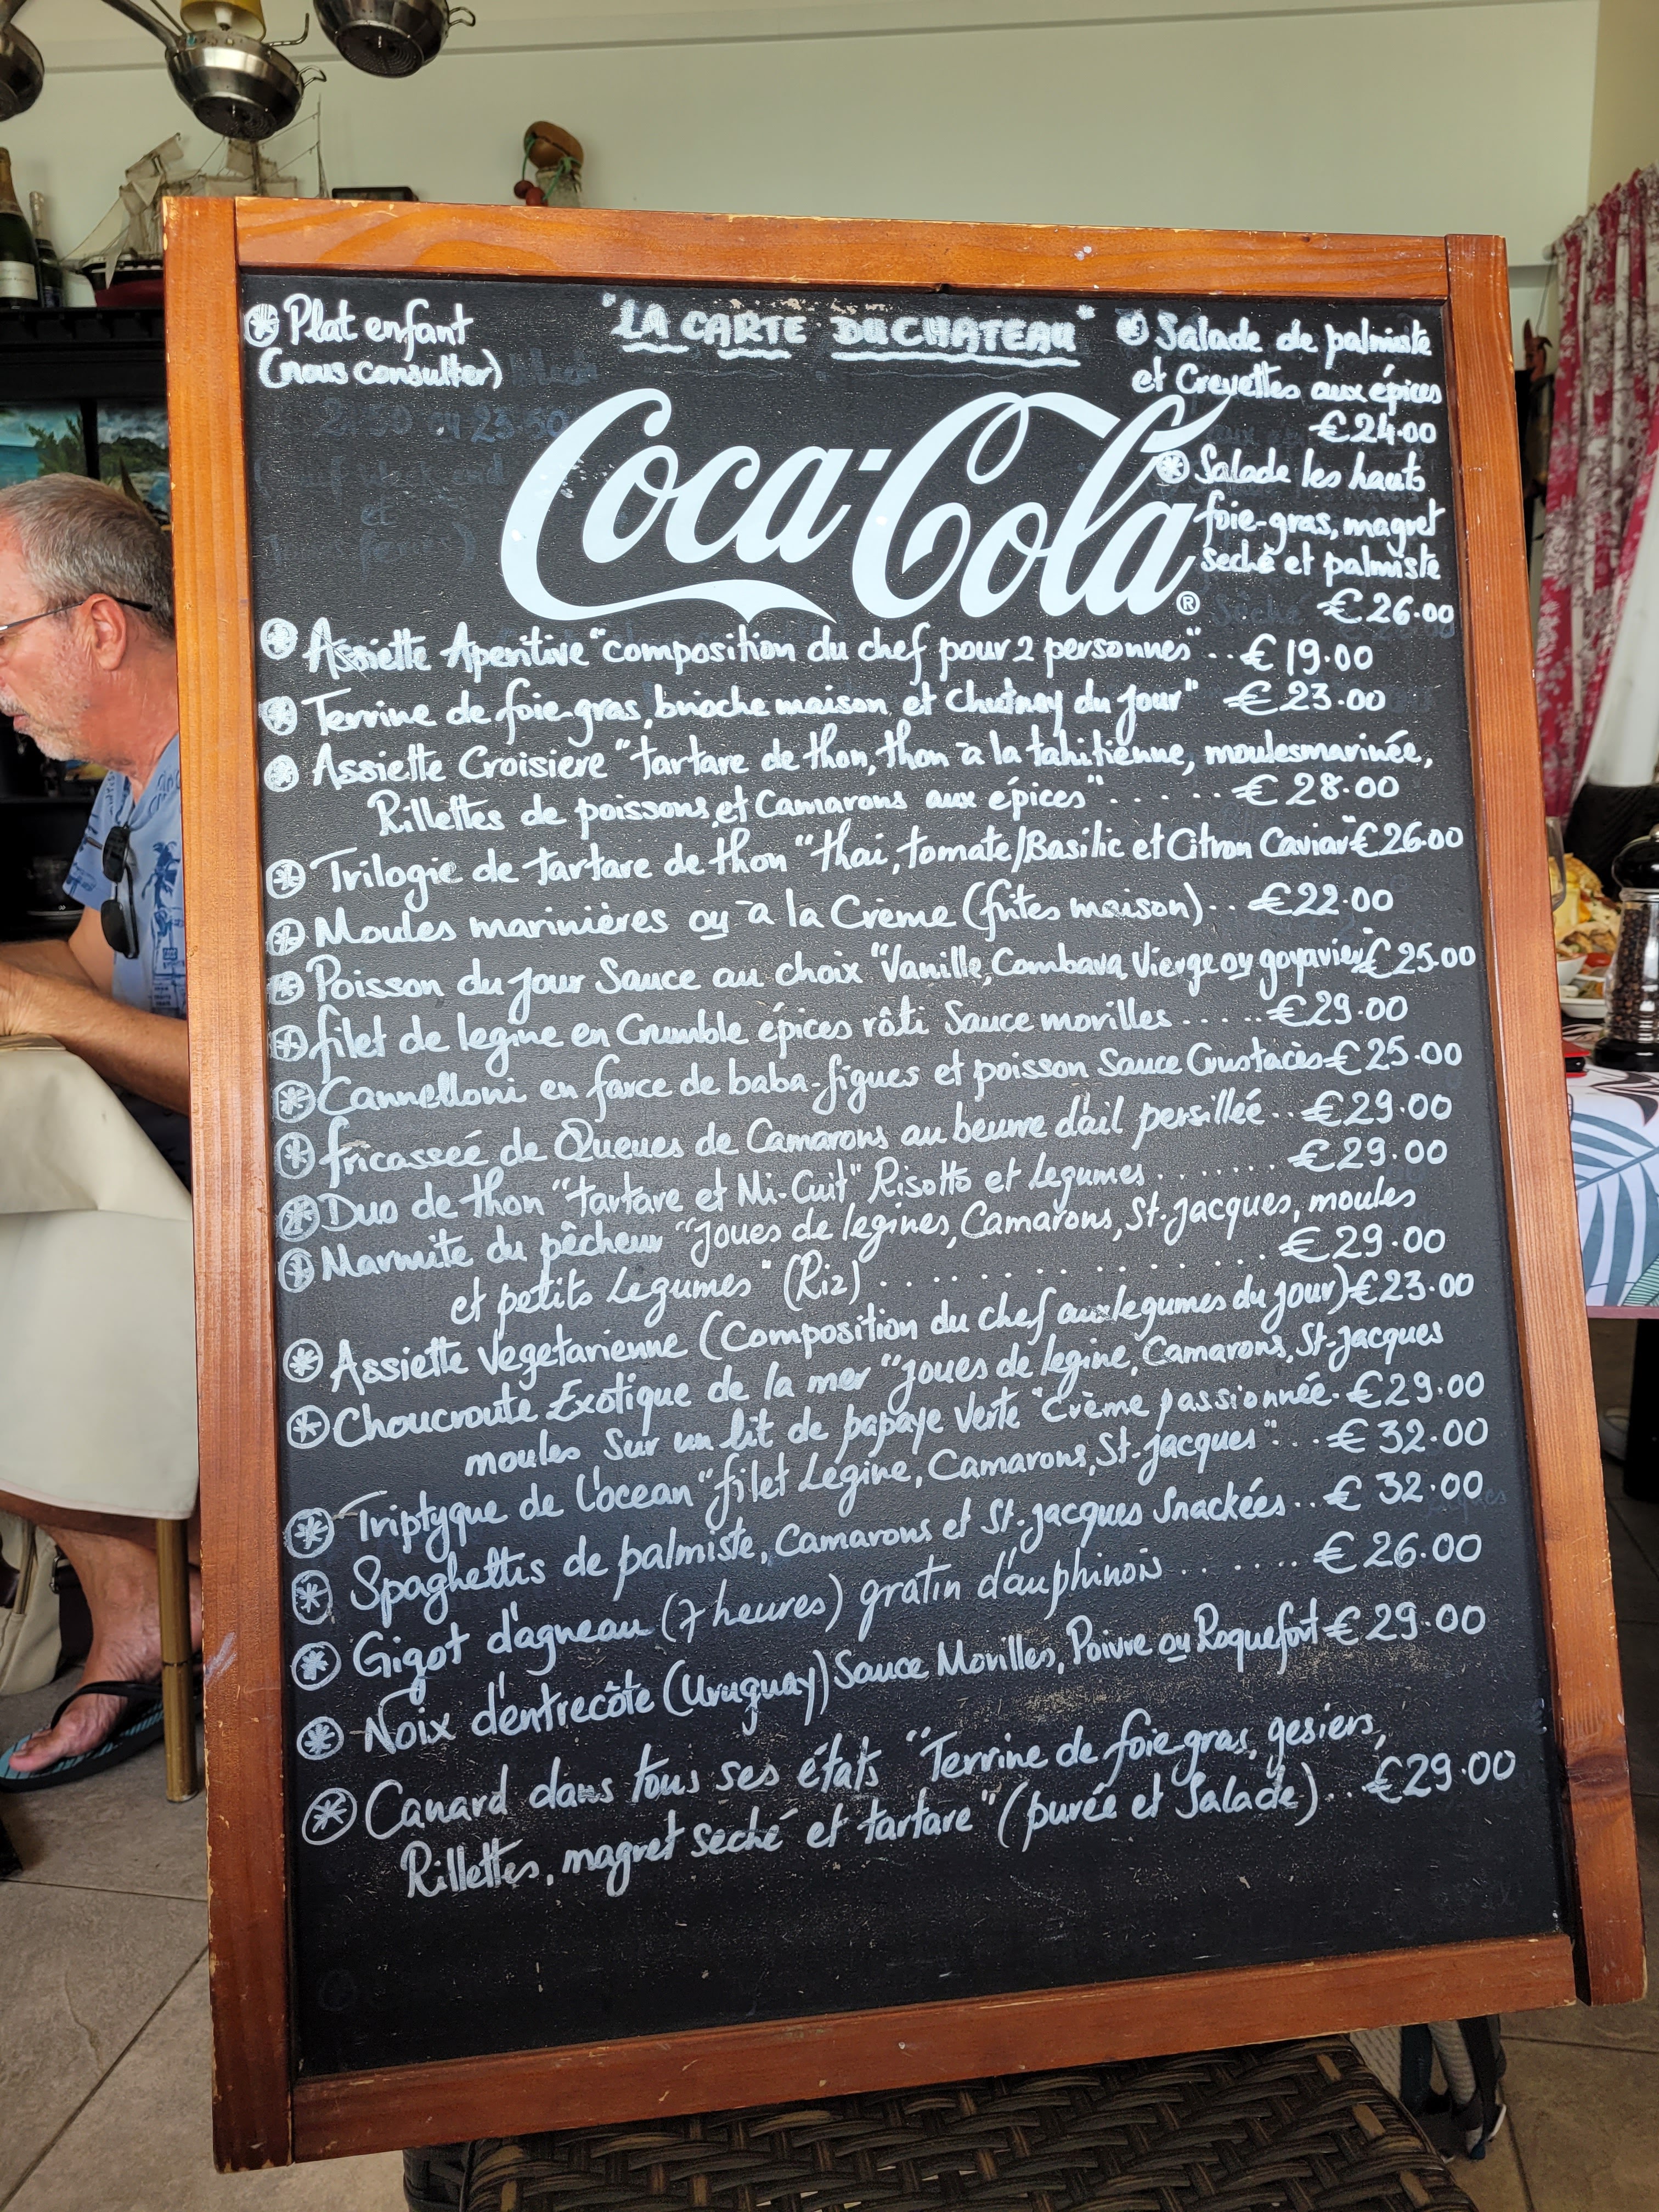 Plat enfant
(nous consulter)
"LA CARTE DU CHATEAU"
Salade de palmiste
et Crevettes aux épices
€24.00
Salade les hauts
foie-gras, magret
seché et palmiste
€26.00
Coca-Cola®
Assiette Aperitive "composition du chef pour 2 personnes".. €19.00
Terrine de foie gras, brioche maison et Chutney du jour" €23.00
Assiette Croisiere "tartare de thon, thon à la tahitienne, moules marinée,
Rillettes de poissons, et Camarons aux épices" ...... €28.00
Trilogie de tartare de thon "thai, tomate/Basilic et Citron Caviar" €26.00
Moules marinières ou à la Crème (frites maison)... €22.00
Poisson du jour Sauce au choix "Vanille, Combava, Vierge ou goyavier" €25.00
filet de legine en Crumble épices rôti Sauce morilles ..... €29.00
Cannelloni en farce de baba-figues et poisson Sauce Crustacès €25.00
fricassée de Queues de Camarons au beurre d'ail persillée .. €29.00
Duo de thon "tartare et Mi-Cuit" Risotto et Legumes ....... €29.00
Marmite du pêcheur "Joues de legines, Camarons, St-Jacques, moules
et petits Legumes" (Riz) .............. €29.00
Assiette Vegetarienne (Composition du chef aux legumes du jour) €23.00
Choucroute Exotique de la mer "Joues de legine, Camarons, St-Jacques
moules Sur un lit de papaye Verte" Crème passionnée. €29.00
Triptyque de L'ocean "filet Légine, Camarons, St-Jacques"... €32.00
Spaghettis de palmiste, Camarons et St-Jacques Snackées.. €32.00
Gigot d'agneau (7 heures) gratin d'auphinois ...... €26.00
Noix d'entrecôte (Uruguay) Sauce Morilles, Poivre ou Roquefort €29.00
Canard dans tous ses états "Terrine de foie gras, gesiers,
Rillettes, magret seché et tartare" (purée et Salade) .. €29.00